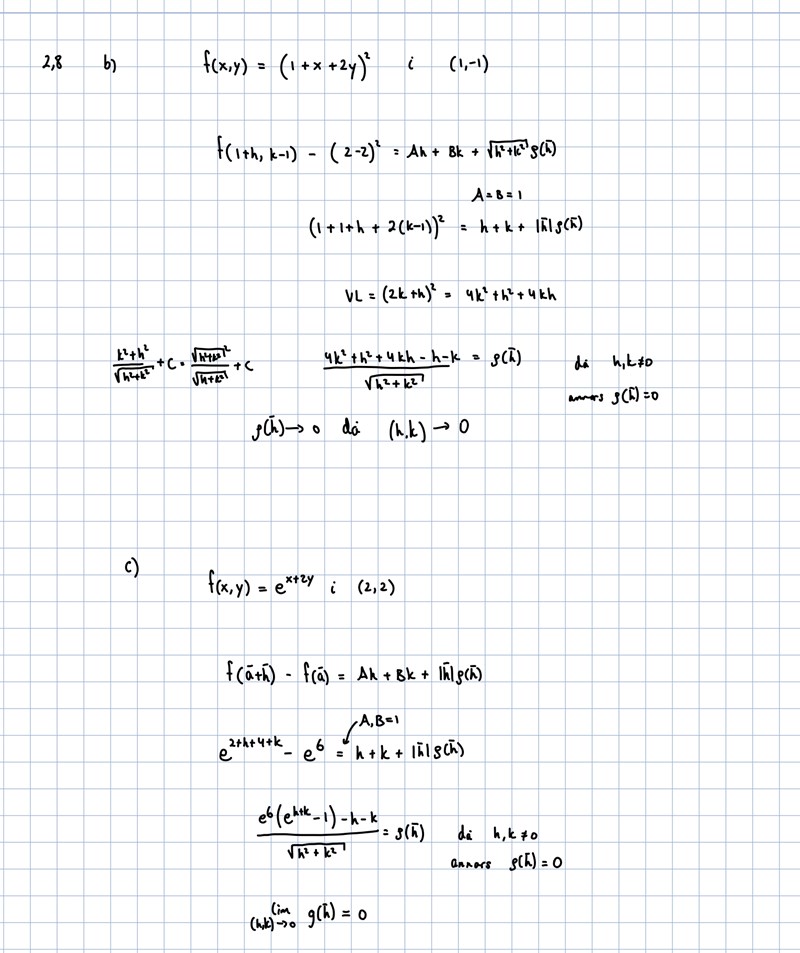 2,8 b) f(x,y) = (1 + x + 2y)² i (1,-1)
f(1+h, k-1) - (2-2)² = Ah + Bk + √(h²+k²) ρ(h̄)
A = B = 1
(1 + 1 + h + 2(k-1))² = h + k + |h̄| ρ(h̄)
VL = (2k + h)² = 4k² + h² + 4kh
(4k² + h² + 4kh - h - k)/√(h² + k²) = ρ(h̄) då h,k ≠ 0
annars ρ(h̄) = 0
ρ(h̄) → 0 då (h,k) → 0
c)
f(x,y) = e^(x+2y) i (2,2)
f(ā+h̄) - f(ā) = Ah + Bk + |h̄| ρ(h̄)
A,B=1
e^(2+h+4+k) - e^6 = h + k + |h̄| ρ(h̄)
(e^6(e^(h+k) - 1) - h - k)/√(h² + k²) = ρ(h̄) då h,k ≠ 0
annars ρ(h̄) = 0
lim (h,k)→0 ρ(h̄) = 0